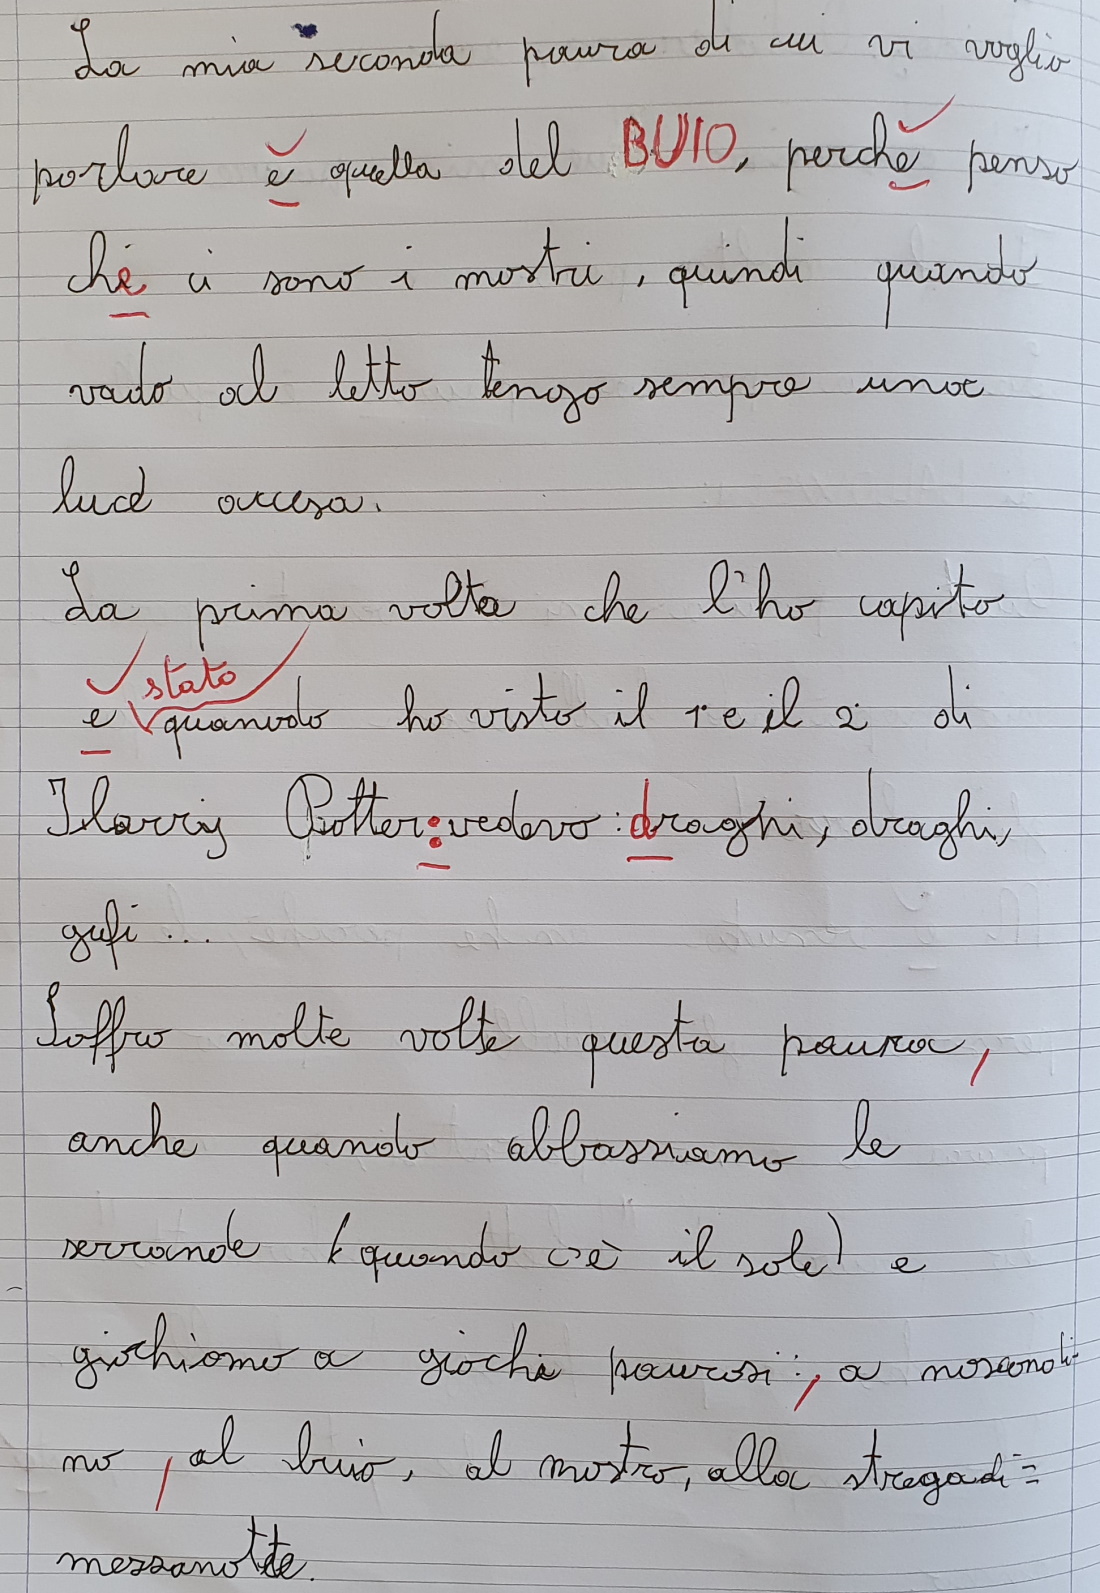 La mia seconda paura di cui vi voglio
parlare è quella del BUIO, perchè penso
che ci sono i mostri, quindi quando
vado al letto tengo sempre una
luce accesa.
La prima volta che l'ho capito
stato
e quando ho visto il 1 e il 2 di
Harry Potter: vedevo: draghi, draghi,
gufi ...
Soffro molte volte questa paura,
anche quando abbassiamo le
serrande (quando c'è il sole) e
giochiamo a giochi paurosi:, a nascondi-
no, al buio, al mostro, alla strega di=
mezzanotte.